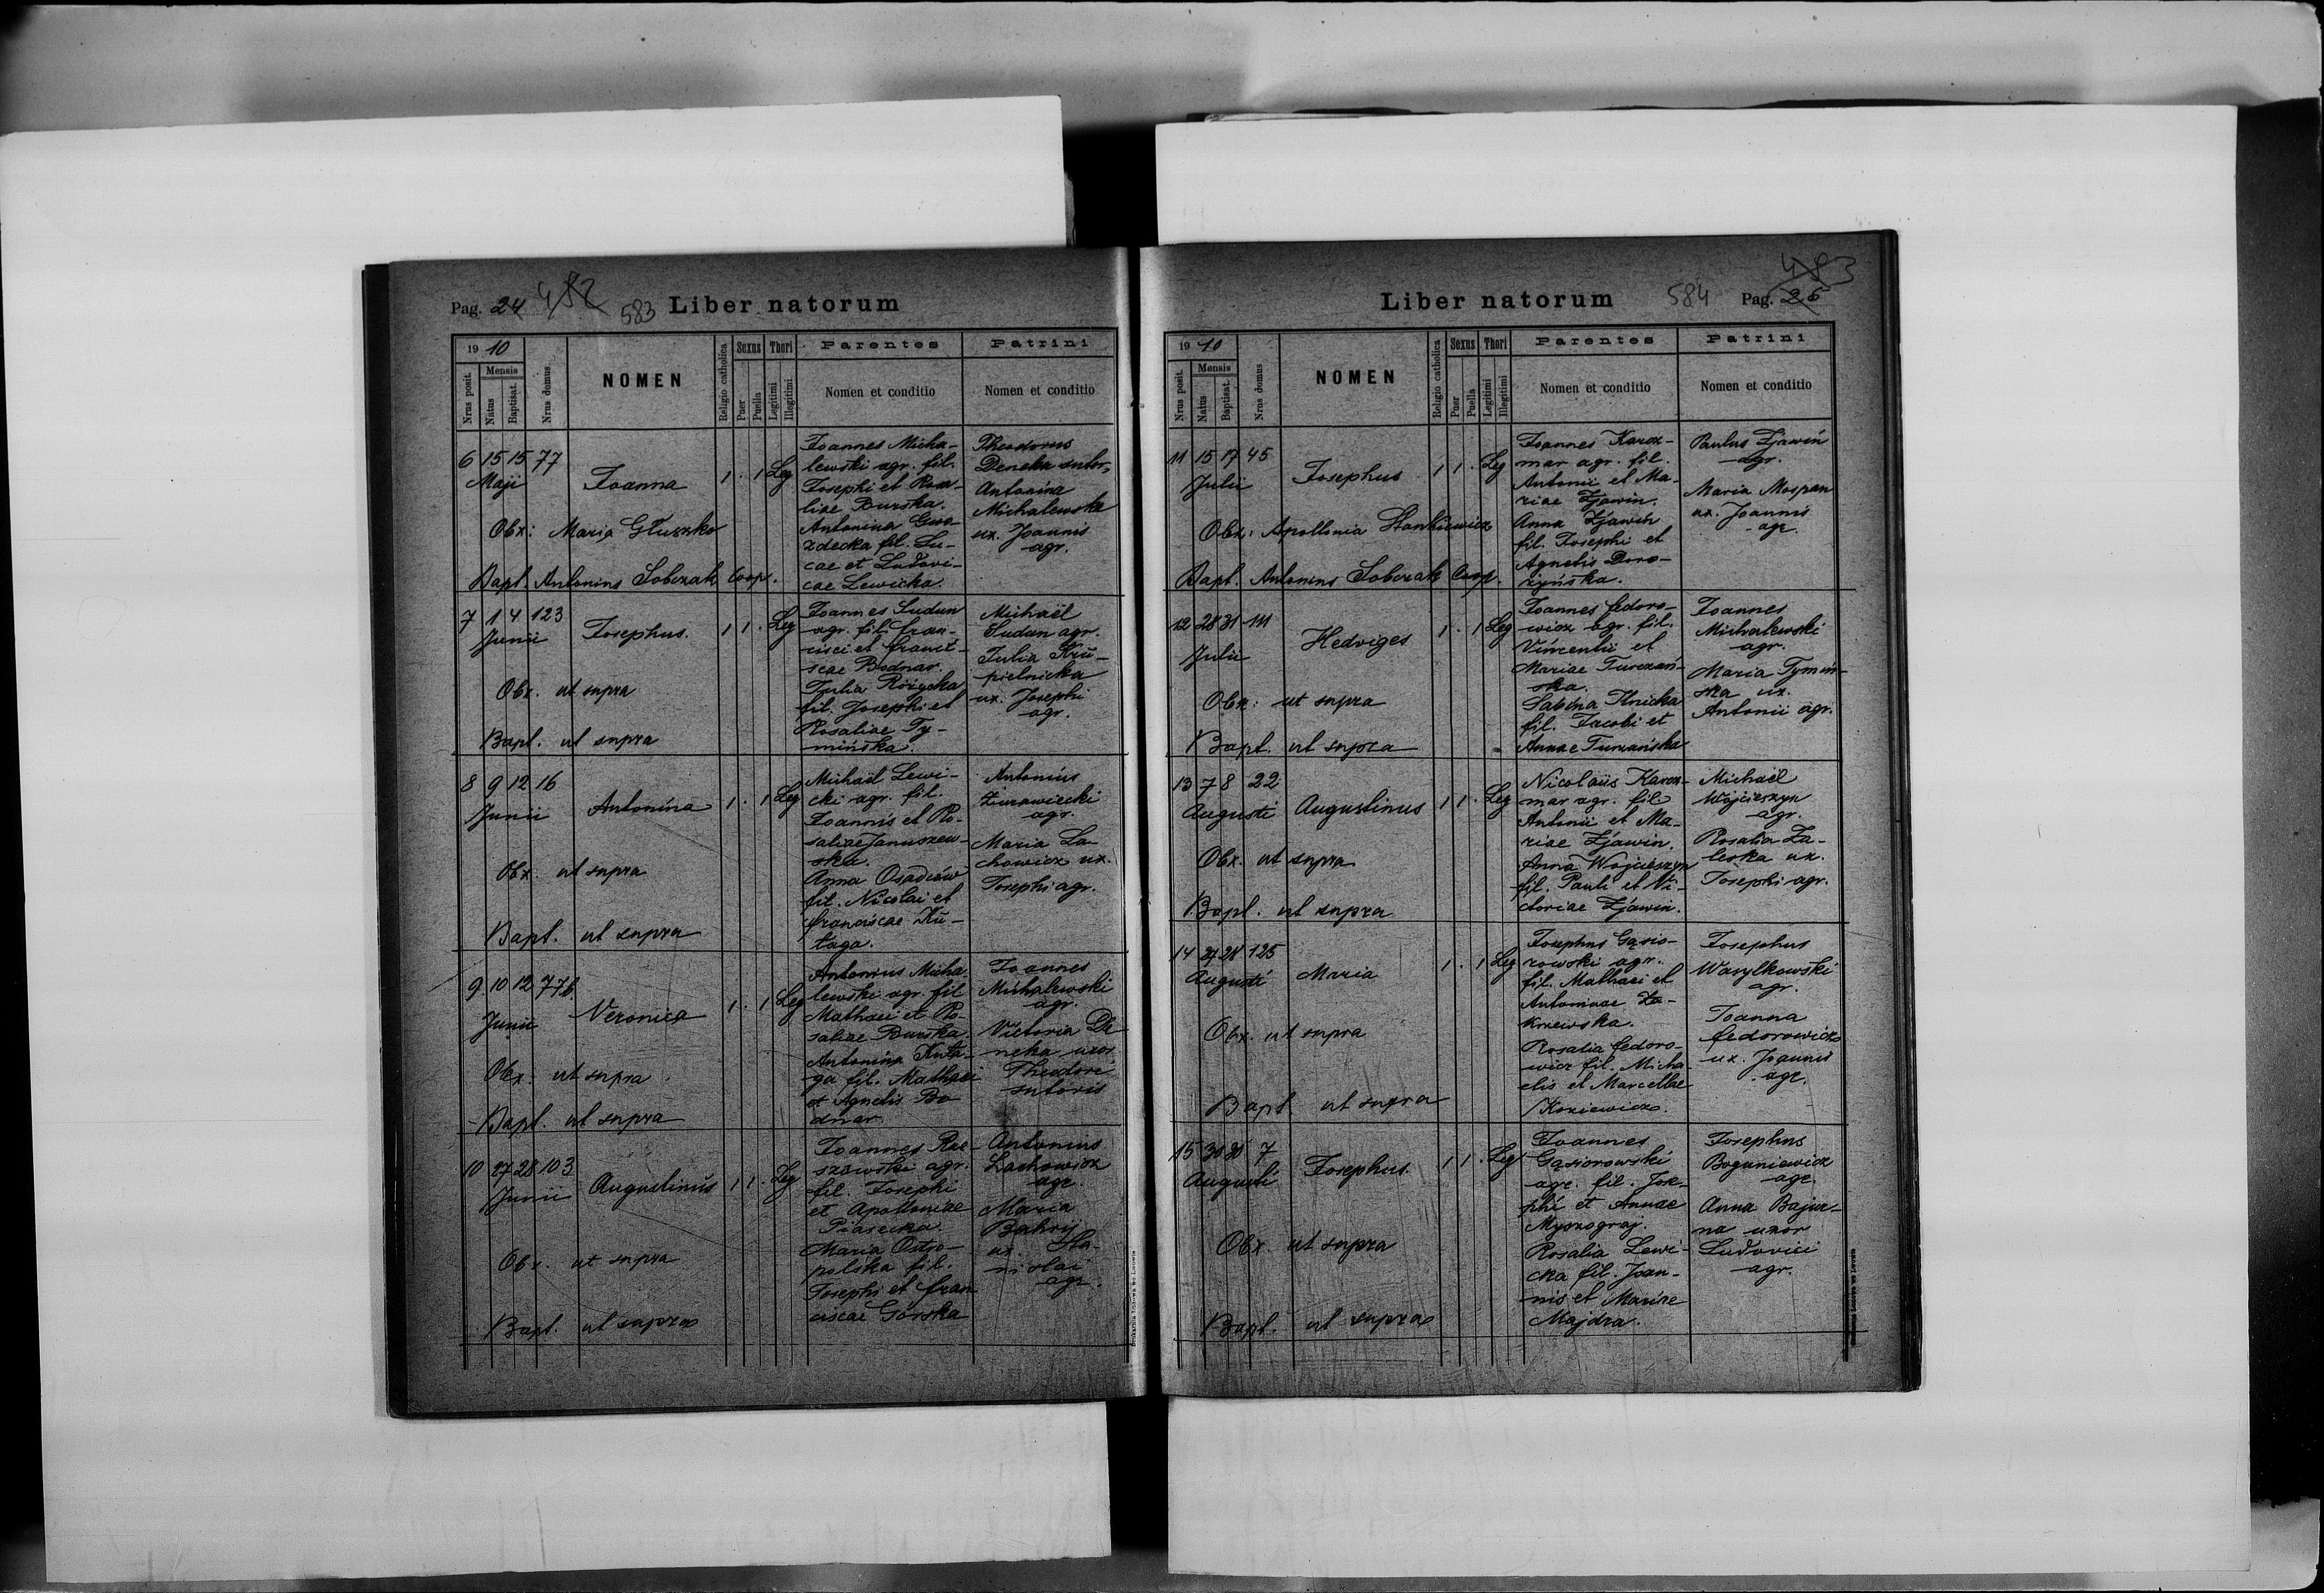 Pag. 24 482 583 Liber natorum
19 10
Nrus posit.
Mensis
Natus
Baptisat.
Nrus domus
NOMEN
Religio catholica
Sexus
Puer
Puella
Thori
Legitimi
Illegitimi
Parentes
Nomen et conditio
Patrini
Nomen et conditio
6 15 15 77
Maji
Joanna
1 . 1 Leg
Obx: Maria Głuszko
Bapt. Antonius Sobczak Coop.
Joannes Micha-
lewski agr. fil.
Josephi et Rosa-
liae Burska.
Antonina Gwa-
zdecka fil. Lu-
cae et Ludovi-
cae Lewicka.
Theodorus
Deneka sutor,
Antonina
Michalewska
ux. Joannis
agr.
7 1 4 123
Junii
Josephus.
1 1 . Leg
Obx. ut supra
Bapt. ut supra
Joannes Sudun
agr. fil. Fran-
cisci et Franci-
scae Bodnar.
Julia Różycka
fil. Josephi et
Rosaliae Ty-
mińska.
Michaël
Sudun agr.
Julia Kru-
pielnicka
ux. Josephi
agr.
8 9 12 16
Junii
Antonina
1 . 1 Leg
Obx. ut supra
Bapt. ut supra
Michaël Lewi-
cki agr. fil.
Joannis et Ro-
saliae Januszew-
ska.
Anna Osadców
fil. Nicolai et
Franciscae Ku-
taga.
Antonius
Żurawiecki
agr.
Maria La-
chowicz ux.
Josephi agr.
9. 10 12 776.
Junii
Veronica
1 . 1 Leg
Obx: ut supra
Bapt. ut supra
Antonius Micha-
lewski agr. fil
Mathaei et Ro-
saliae Burska.
Antonina Kuta-
ga fil. Mathaei
et Agnetis Bo-
dnar.
Joannes
Michalewski
agr.
Victoria De-
neka uxor
Theodori
sutoris
10 27 28 103
Junii
Augustinus
1 1 . Leg
Obx. ut supra
Bapt. ut supra
Joannes
szowski agr.
fil. Josephi
et Apolloniae
Piasecka.
Maria Ostro-
polska fil.
Josephi et Fran-
ciscae Górska
Antonius
Lachowicz
agr.
Maria
Bahrij
ux.
agr.
Drukarnia Ludowa we Lwowie
Liber natorum 584 Pag. 25 483
19 10
Nrus posit.
Mensis
Natus
Baptisat.
Nrus domus
NOMEN
Religio catholica
Sexus
Puer
Puella
Thori
Legitimi
Illegitimi
Parentes
Nomen et conditio
Patrini
Nomen et conditio
11 15 17 45
Julii
Josephus
1 1 . Leg
Obx: Apollonia Stankiewicz
Bapt. Antonius Sobczak Coop.
Joannes Karcz-
mar agr. fil.
Antonii et Ma-
riae Zjawin.
Anna Zjawin
fil. Josephi et
Agnetis Doro-
żyńska.
Paulus Zjawin
agr.
Maria Mospan
ux. Joannis
agr.
12 28 31 111
Julii
Hedviges
1 . 1 Leg
Obx: ut supra
Bapt. ut supra
Joannes Fedoro-
wicz agr. fil.
Vincentii et
Mariae Turzań-
ska.
Sabina Ilnicka
fil. Jacobi et
Annae Turzańska
Joannes
Michalewski
agr.
Maria Tymiń-
ska ux.
Antonii agr.
13 7 8 22
Augusti
Augustinus
1 1 . Leg
Obx. ut supra
Bapt. ut supra
Nicolaus Karcz-
mar agr. fil
Antonii et Ma-
riae Zjawin.
Anna Wojcieszyn
fil. Pauli et Vi-
ctoriae Zjawin.
Michaël
Wojcieszyn
agr.
Rosalia Za-
leska ux.
Josephi agr.
14 27 28 125
Augusti
Maria
1 . 1 Leg
Obx. ut supra
Bapt. ut supra
Josephus Gąsio-
rowski agr.
fil. Mathaei et
Antoninae Za-
krzewska.
Rosalia Fedoro-
wicz fil. Micha-
elis et Marcellae
Koziewicz.
Josephus
Wasylkowski
agr.
Joanna
Fedorowicz
ux. Joannis
agr.
15 30 30 7
Augusti
Josephus.
1 1 . Leg
Obx. ut supra
Bapt. ut supra
Joannes
Gąsiorowski
agr. fil. Jose-
phi et Annae
Myszograj.
Rosalia Lewi-
cka fil. Joan-
nis et Mariae
Majdra.
Josephus
Boguniewicz
agr.
Anna Bajur-
na uxor
Ludovici
agr.
Drukarnia Ludowa we Lwowie